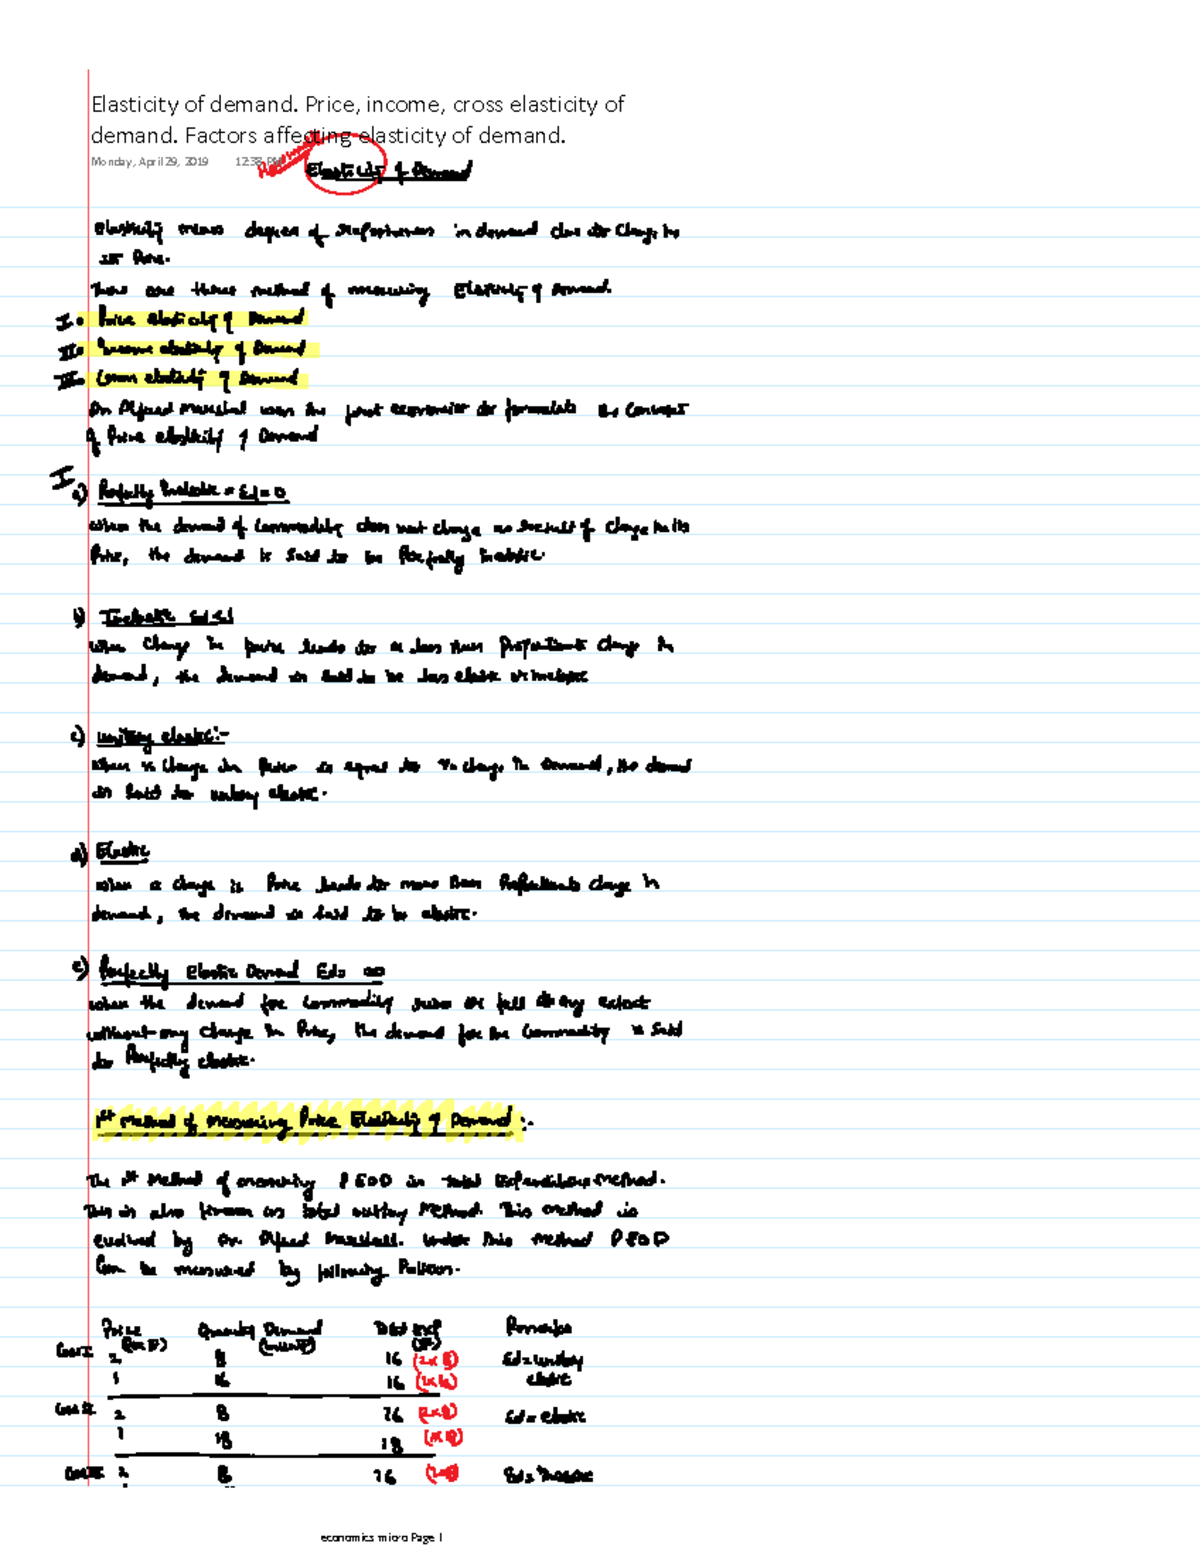 Elasticity of demand. Price, income, cross elasticity of
demand. Factors affecting elasticity of demand.
Monday, April 29, 2019 12:38 PM
Elasticity of Demand
Elasticity means degree of responsiveness in demand due to change in
its Price.
There are three method of measuring Elasticity of Demand.
I. Price elasticity of Demand
II. Income elasticity of Demand
III. Cross elasticity of Demand
Dr Alfred Marshal was the first economist to formulate the concept
of Price elasticity of Demand
I
a) Perfectly Inelastic = Ed = 0
When the demand of commodity does not change as result of change in its
Price, the demand is said to be Perfectly Inelastic.
b) Inelastic Ed < 1
When change in price leads to a less than Proportionate change in
demand, the demand is said to be less elastic or inelastic
c) unitary elastic:-
When % change in Price is equal to % change in Demand, the demand
is said to unitary elastic.
d) Elastic
When a change in Price leads to more than Proportionate change in
demand, the demand is said to be elastic.
e) Perfectly Elastic Demand Ed = ∞
When the demand for commodity rises or fall to any extent
without any change in Price, the demand for the commodity is said
to Perfectly elastic.
1st Method of Measuring Price Elasticity of Demand :-
The 1st Method of measuring PEOD is total Expenditure Method.
This is also known as total outlay Method. This method is
evolved by Dr. Alfred Marshall. Under this method PEOD
Can be measured by following
Price Quantity Demand Total exp Remarks
Case I 2 8 16 (2x8) Ed = unitary
1 16 16 (1x16) elastic
Case II 2 8 16 (2x8) Ed = elastic
1 18 18 (1x18)
Case III 2 8 16 (2x8) Ed = Inelastic
economics micro Page 1